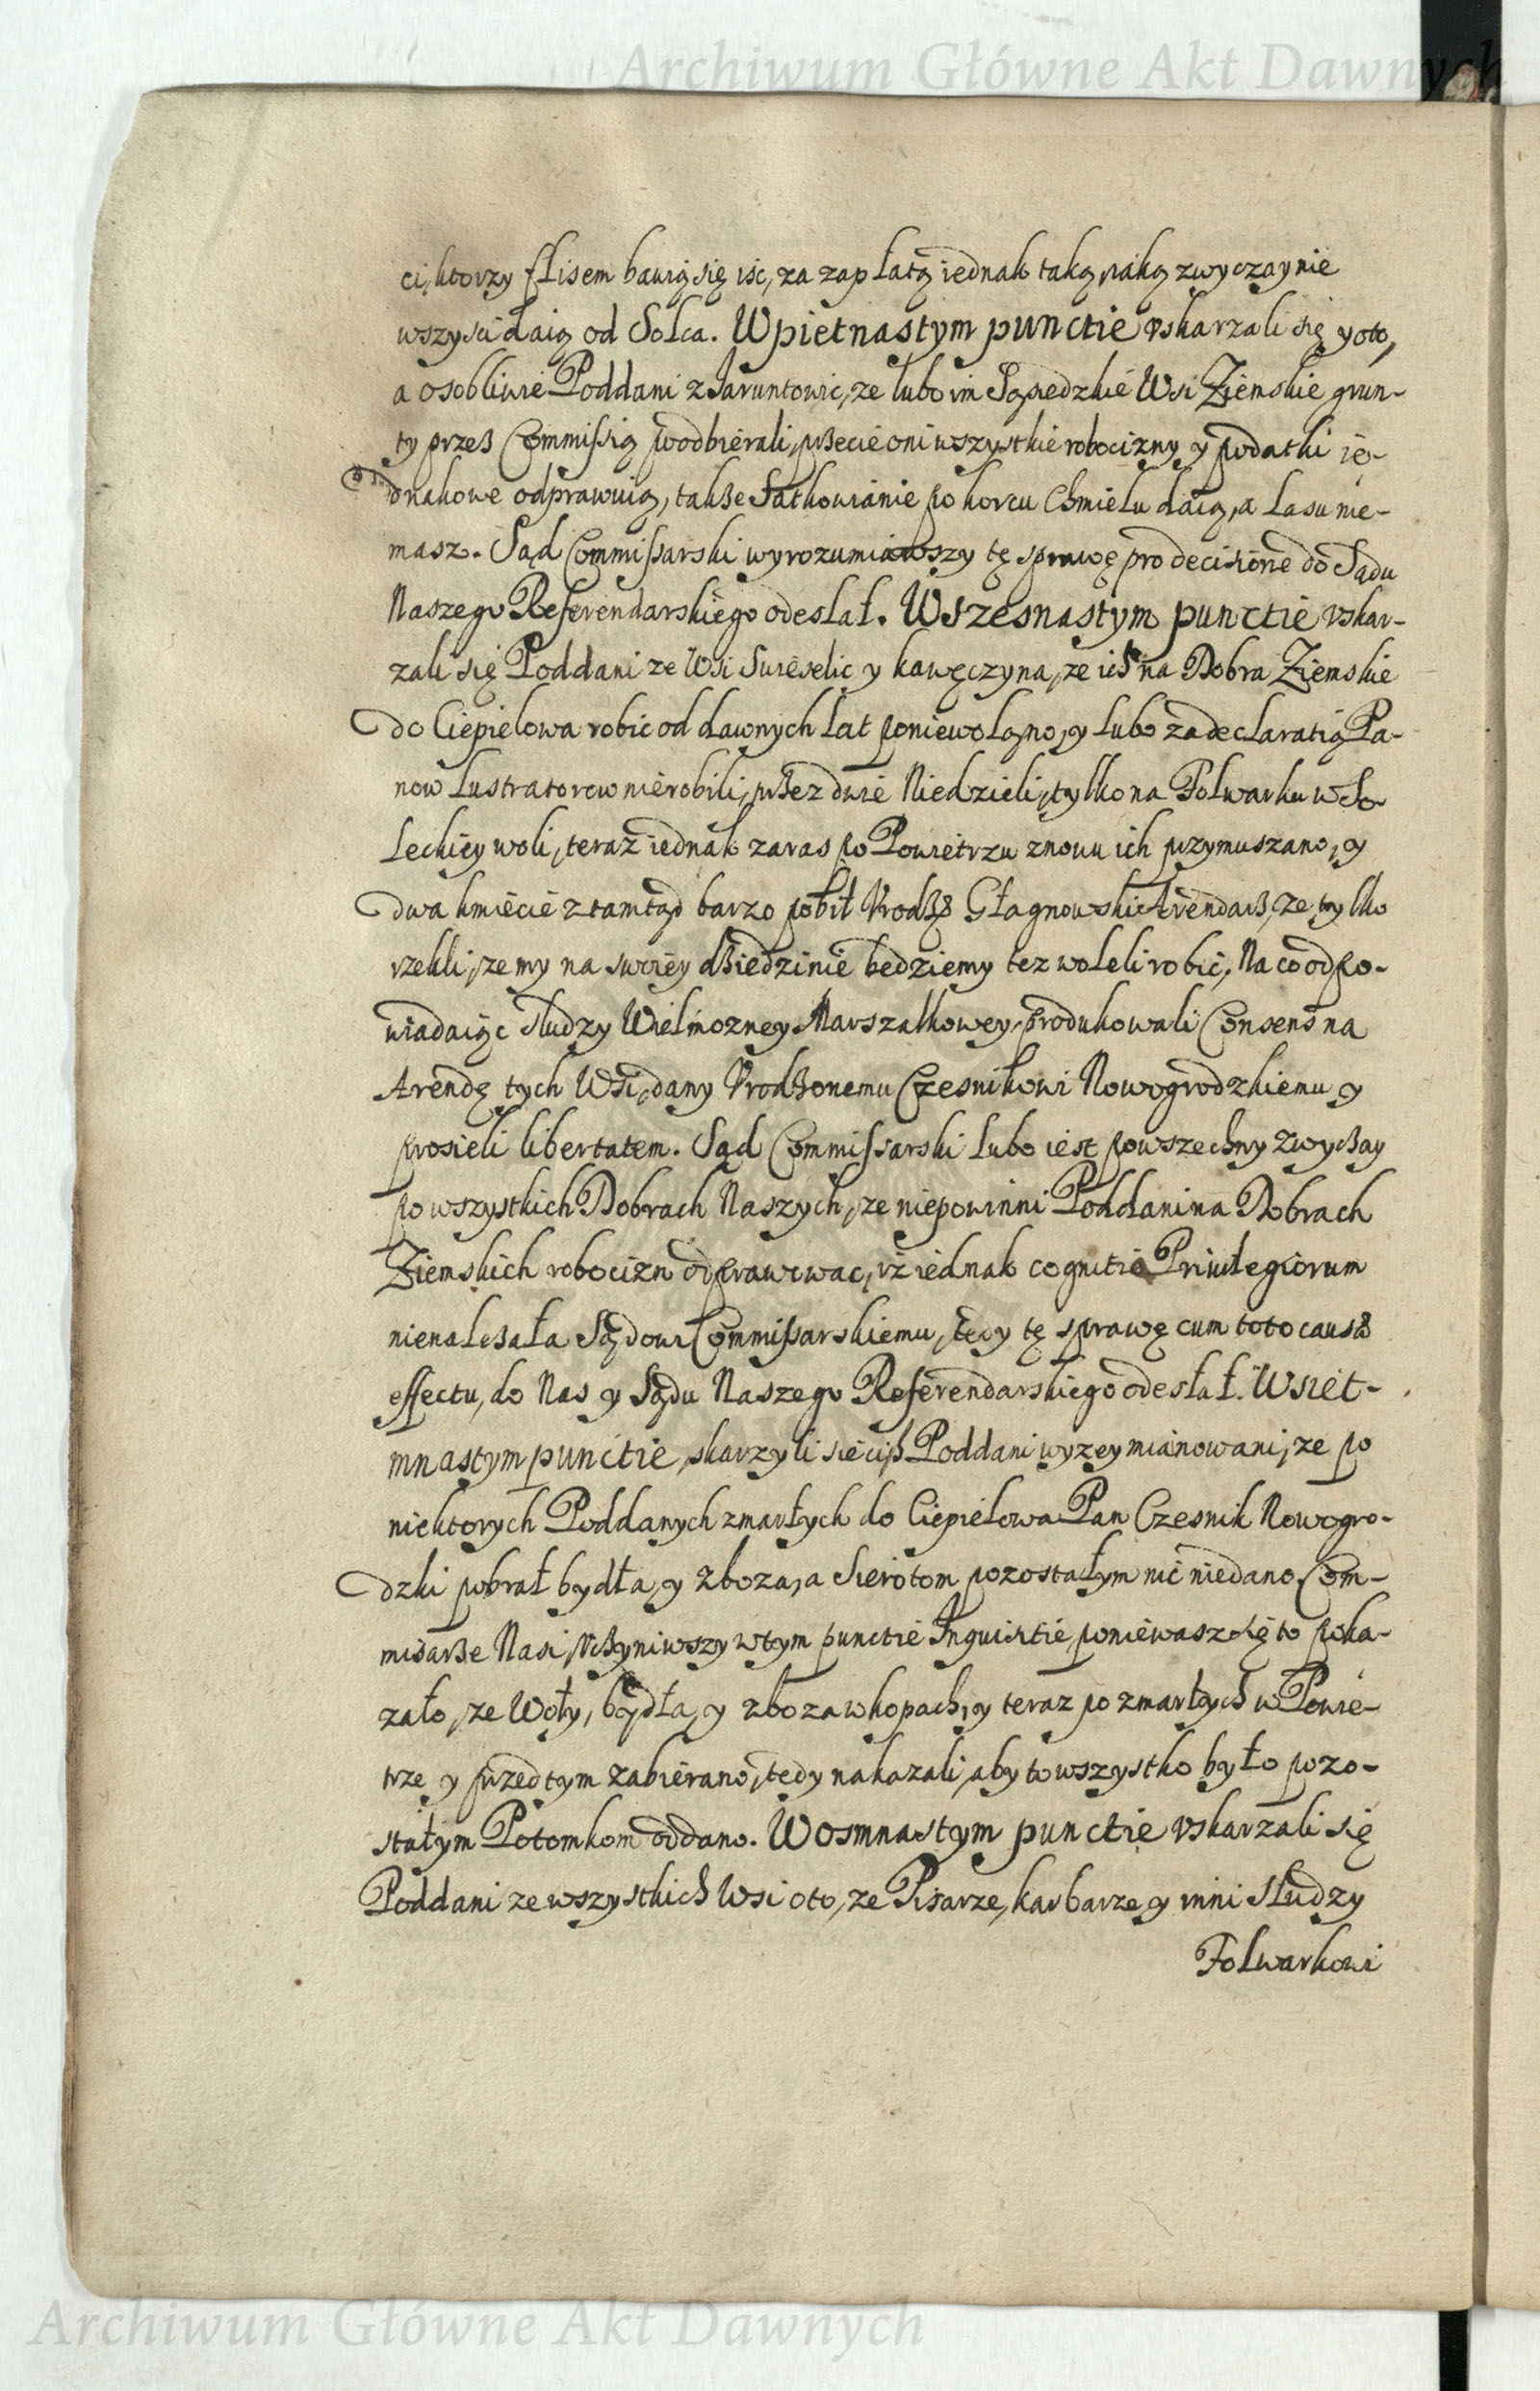 Archiwum Główne Akt Dawnych
ci, ktorzy flisem bawią się iśc, za zapłatą iednak taką, iaką zwyczaynie
wszyści daią od Solca. W pietnastym punctie vskarzali się y oto,
a osobliwie Poddani z Jaruntowic, ze lubo im Sąsiedzkie Wsi Ziemskie grun-
ty przez Commissią poodbierali, przecie oni wszystkie robocizny y podatki ie-
dnakowe odprawuią, takze Jatkowianie po korcu Chmielu daią, a Lasu nie-
masz. Sąd Commissarski wyrozumiawszy tę sprawę pro decisione do Sądu
Naszego Referendarskiego odesłał. W szesnastym punctie vskar-
zali się Poddani ze Wsi Sureselic y Kawęczyna, ze ich na Dobra Ziemskie
do Ciepielowa robic od dawnych Lat poniewolono, y lubo za declaratią Pa-
now Lustratorow nie robili, przez dwie Niedzieli, tylko na Folwarku w So-
Leckiey woli, teraz iednak zaras po Powietrzu znowu ich przymuszano, y
dwa kmiecie ztamtąd barzo pobił Vrodzo Głagnowski Arendarz, ze tylko
rzekli, ze my na swoiey dziedzinie bedziemy tez woleli robić, Na co odpo-
wiadaiąc słudzy Wielmozney Marszałkowey, produkowali Consens na
Arendę tych Wsi, dany Vrodzonemu Czesnikowi Nowogrodzkiemu y
prosieli libertatem. Sąd Commissarski Lubo iest powszechny zwyczay
po wszystkich Dobrach Naszych, ze niepowinni Poddani na Dobrach
Ziemskich robocizn odprawowac, iż iednak cognitio Priuilegiorum
nienalezała Sądowi Commissarskiemu, tedy tę sprawę cum toto causæ
effectu, do Nas y Sądu Naszego Referendarskiego odesłał. W siet-
mnastym punctie, skarzyli sie ciż Poddani wyzey mianowani, ze po
niektorych Poddanych zmarłych do Ciepielowa Pan Czesnik Nowogro-
dzki pobrał bydła, y zboza, a Sierotom pozostałym nic niedano. Com-
misarze Nasi, vczyniwszy w tym punctie Inquisitie, poniewasz się to poka-
zało, ze Woły, bydła, y zboza w kopach, y teraz po zmarłych w Powie-
trze y przedtym zabierano, tedy nakazali, aby to wszystko było pozo-
stałym Potomkom oddano. W osmnastym punctie vskarzali się
Poddani ze wszystkich Wsi oto, ze Pisarze, karbarze y inni Słudzy
Folwarkowi
Archiwum Główne Akt Dawnych